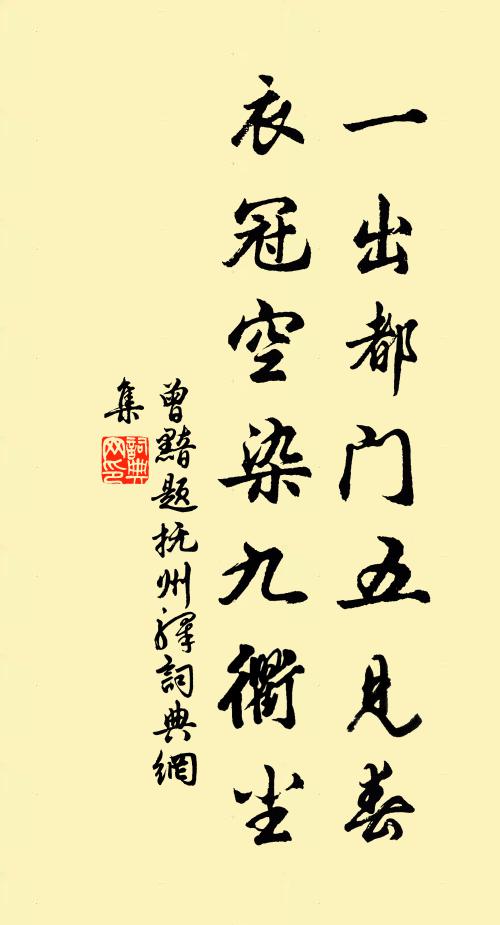 一出都门五见春
衣冠空染九衢尘
曾黯题抚州驿詞典網
集
詞典網印